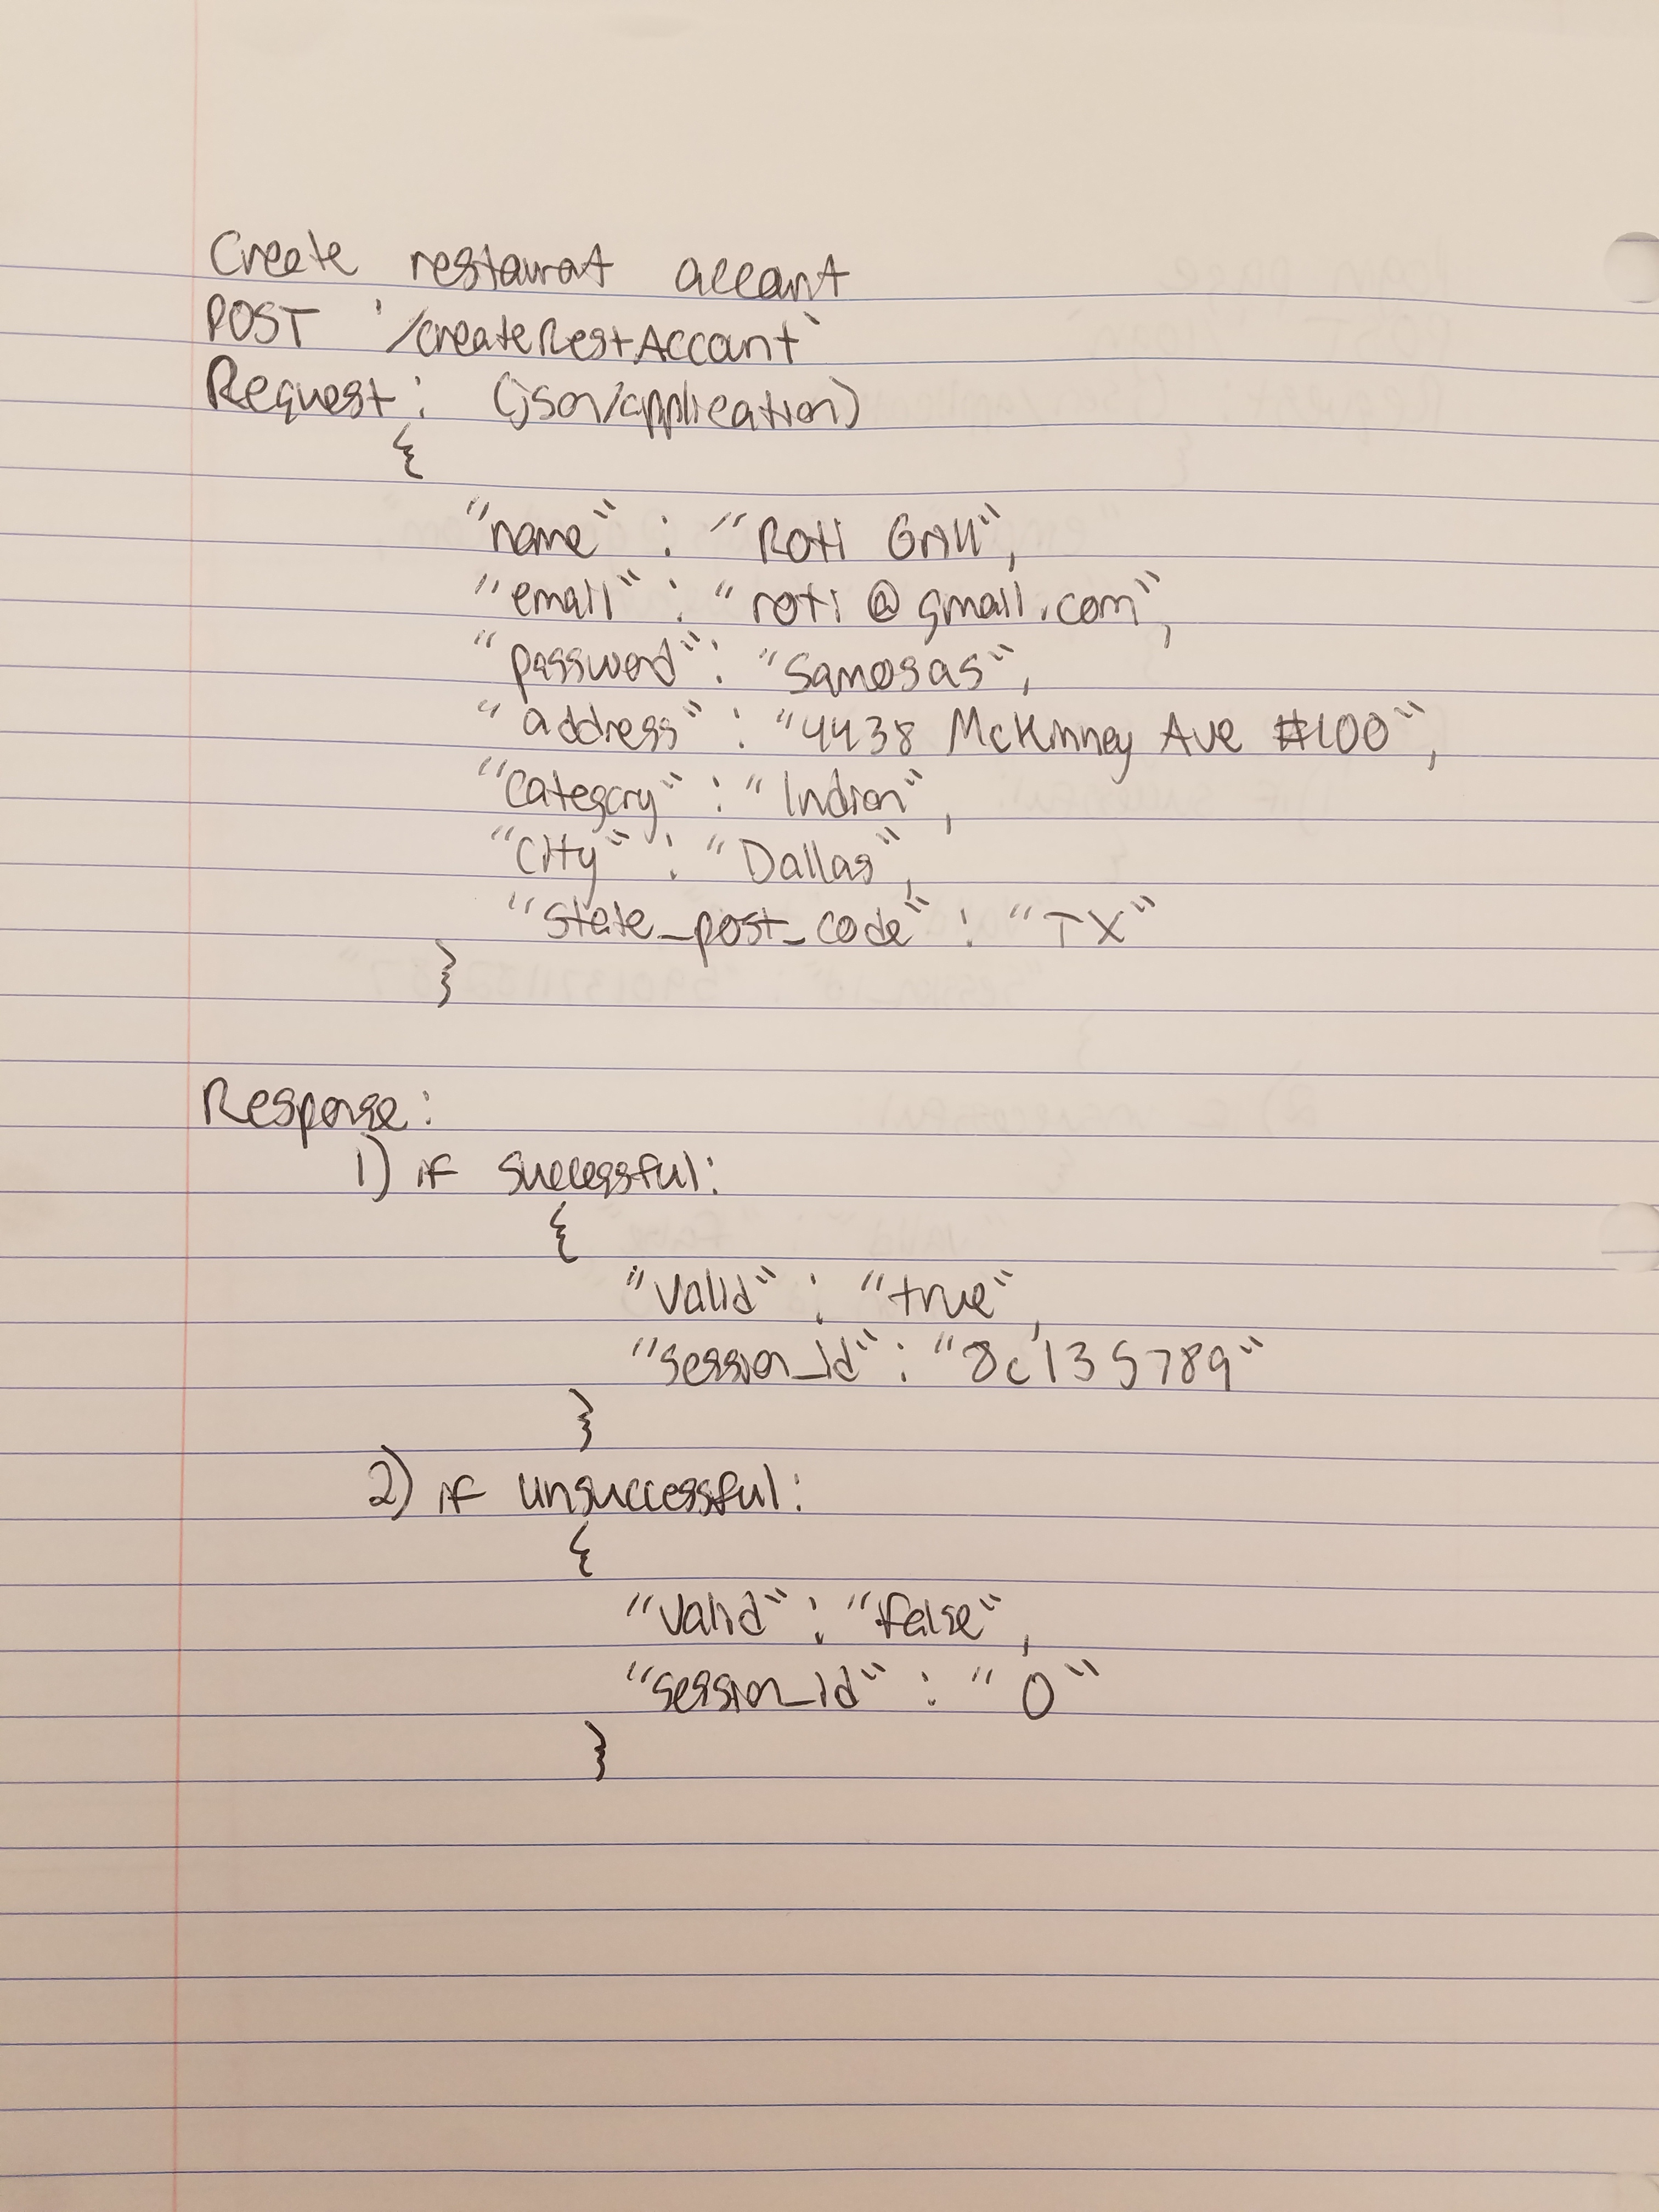 Create restaurat account
POST '/createRestAccount'
Request: (json/application)
{
"name" : "Roti Grill",
"email" : "roti@gmail.com",
"password" : "Samosas",
"address" : "4438 McKinney Ave #100",
"Category" : "Indian",
"City" : "Dallas",
"state_post_code" : "TX"
}
Response:
1) if successful:
{
"valid" : "true",
"session_id" : "8c135789"
}
2) if unsuccessful:
{
"valid" : "false",
"session_id" : "0"
}